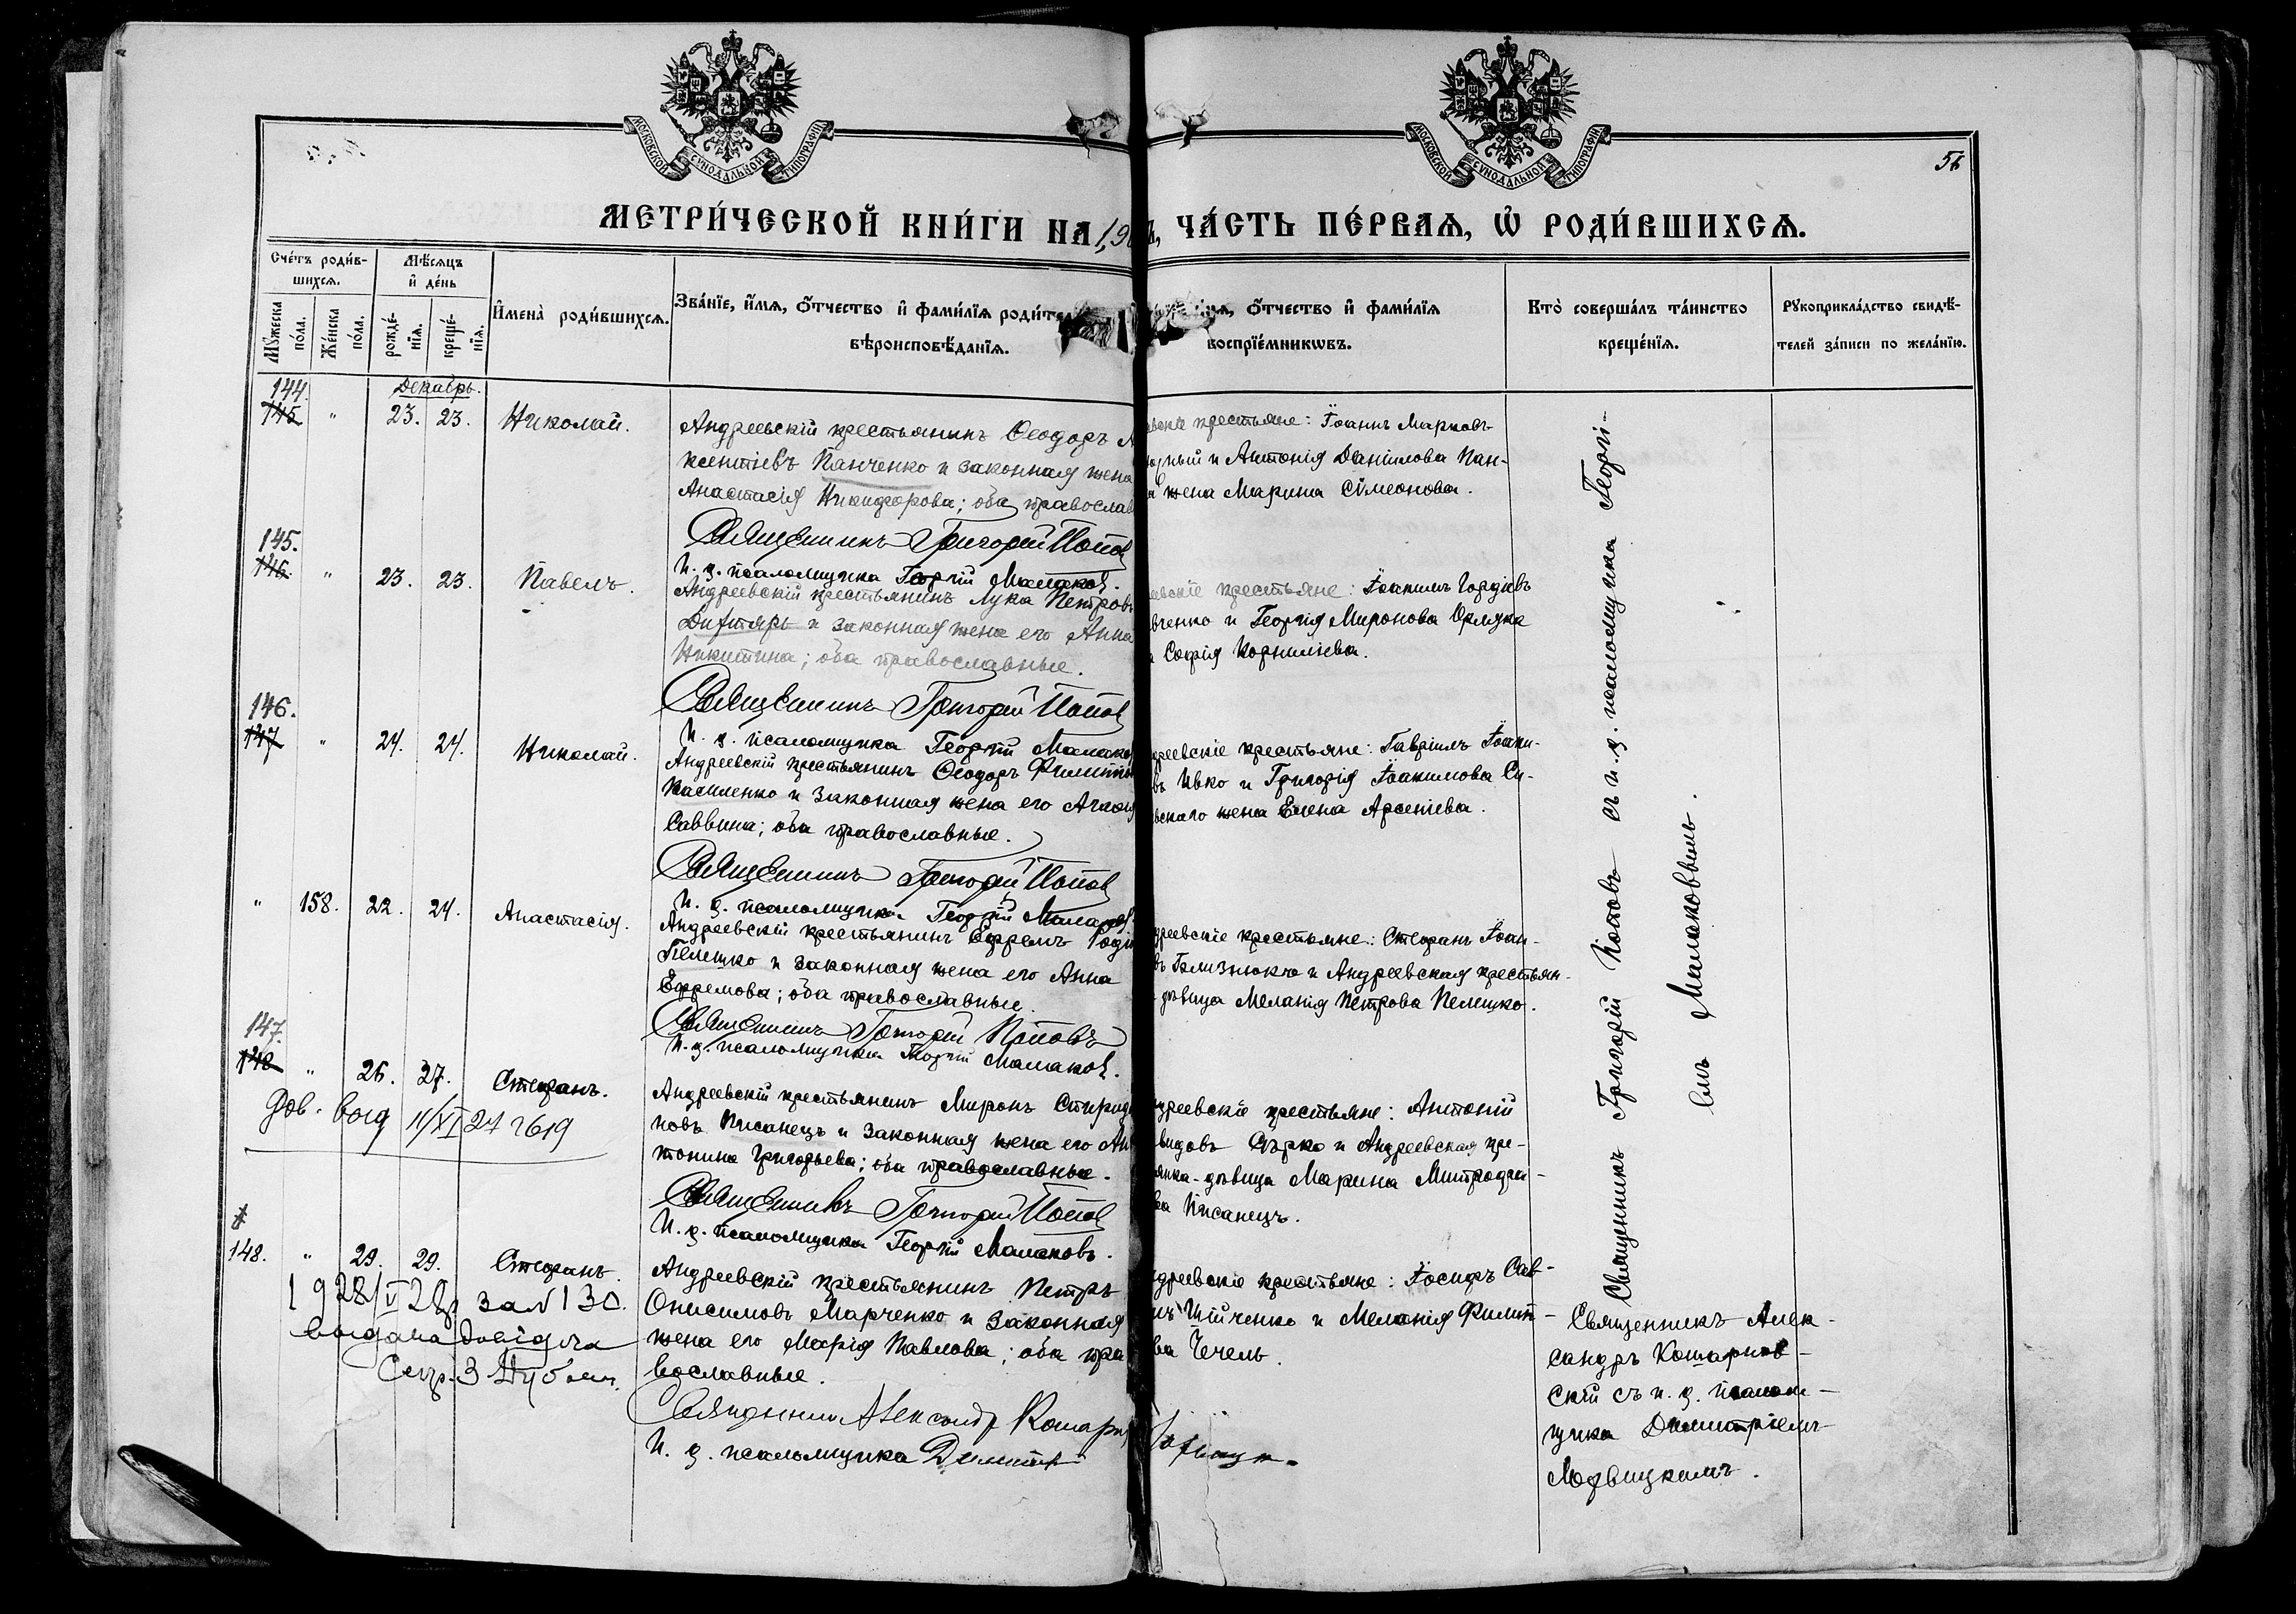 МОСКОВСКОЙ СѴНОДАЛЬНОЙ ТИПОГРАФІИ
МОСКОВСКОЙ СѴНОДАЛЬНОЙ ТИПОГРАФІИ
56
МЕТРИ́ЧЕСКОЙ КНИ́ГИ НА 19
ЧА́СТЬ ПЕ́РВАѦ, Ѡ҆ РОДИ́ВШИХСѦ.
Сче́тъ роди́в-
шихсѧ.
Мꙋ́жеска по́ла.
Же́нска по́ла.
Мѣ́сѧцъ
и҆ де́нь
рожде́-
нїѧ.
креще́-
нїѧ.
И҆мена̀ роди́вшихсѧ.
Зва́нїе, и҆́мѧ, ѻ҆́тчество и҆ фами́лїѧ роди́те
вѣроисповѣ́данїѧ.
ѻ҆́тчество и҆ фами́лїѧ
воспрїе́мникѡвъ.
Кто̀ соверша́лъ та́инство
креще́нїѧ.
Рꙋкоприкла́дство свидѣ́-
телей за́писи по жела́нїю.
Декабрь.
144.
145 " 23. 23. Николай.
Андреевскій крестьянинъ Ѳеодоръ А
ксентіевъ Панченко и законная жена
Анастасія Никифорова; оба православ
Священникъ Григорій Попов
И. д. псаломщика Георгій Малаков.
крестьяне: Іоаннъ Марковъ
и Антонія Даніилова Пан-
жена Марина Сімеонова.
145.
146. " 23. 23. Павелъ.
Андреевскій крестьянинъ Лука Петровъ
Дихтярь и законная жена его Анна
Никитина; оба православные.
Священникъ Григорій Попов
И. д. псаломщика Георгій Малаков
евскіе крестьяне: Іоакимъ Гордіевъ
вченко и Георгія Миронова Орлука
Софія Корнилієва.
146.
147 " 24. 24. Николай.
Андреевскій крестьянинъ Ѳеодоръ Филиппо
Василенко и законная жена его Агаѳія
Саввина; оба православные.
Священникъ Григорій Попов
И. д. псаломщика Георгій Малаков
дреевскіе крестьяне: Гавріилъ Іоаки-
въ Ивко и Григорія Іоакимова Си-
вскаго жена Елена Арсеніева.
" 158. 22. 24. Анастасія.
Андреевскій крестьянинъ Ефремъ Родіо
Пелешко и законная жена его Анна
Ефремова; оба православные.
Священникъ Григорій Поповъ
И. д. псаломщика Георгій Малаков.
дреевскіе крестьяне: Стефанъ Іоан-
въ Близнюкъ и Андреевская крестьян-
дѣвица Меланія Петрова Пелешко.
147.
148 " 26. 27. Стефанъ.
Дов. выд 11/XI 27 2619
Андреевскій крестьянинъ Миронъ Спиридо
новъ Писанецъ и законная жена его Ан
тонина Григорьева; оба православные.
Священникъ Григорій Попов
И. д. псаломщика Георгій Малаковъ.
дреевскіе крестьяне: Антоній
видовъ Сѣрко и Андреевская кре-
янка-дѣвица Марина Митрофа-
ва Писанецъ.
148. " 29. 29. Стефанъ.
1928/V 28 за N 130.
выдана довідка
Секр. З
Андреевскій крестьянинъ Петръ
Онисимовъ Марченко и законная
жена его Марія Павлова; оба пра
вославные.
Священник Александр Комар
И. д. псаломщика Димитр
дреевскіе крестьяне: Іосифъ Сав-
Ильченко и Меланія Филип-
ва Чечель.
Священникъ Григорій Поповъ съ и. д. псаломщика Георгі-
емъ Малаковымъ.
Священникъ Алек-
сандръ Комарнов-
скій съ и. д. псалом-
щика Димитріемъ